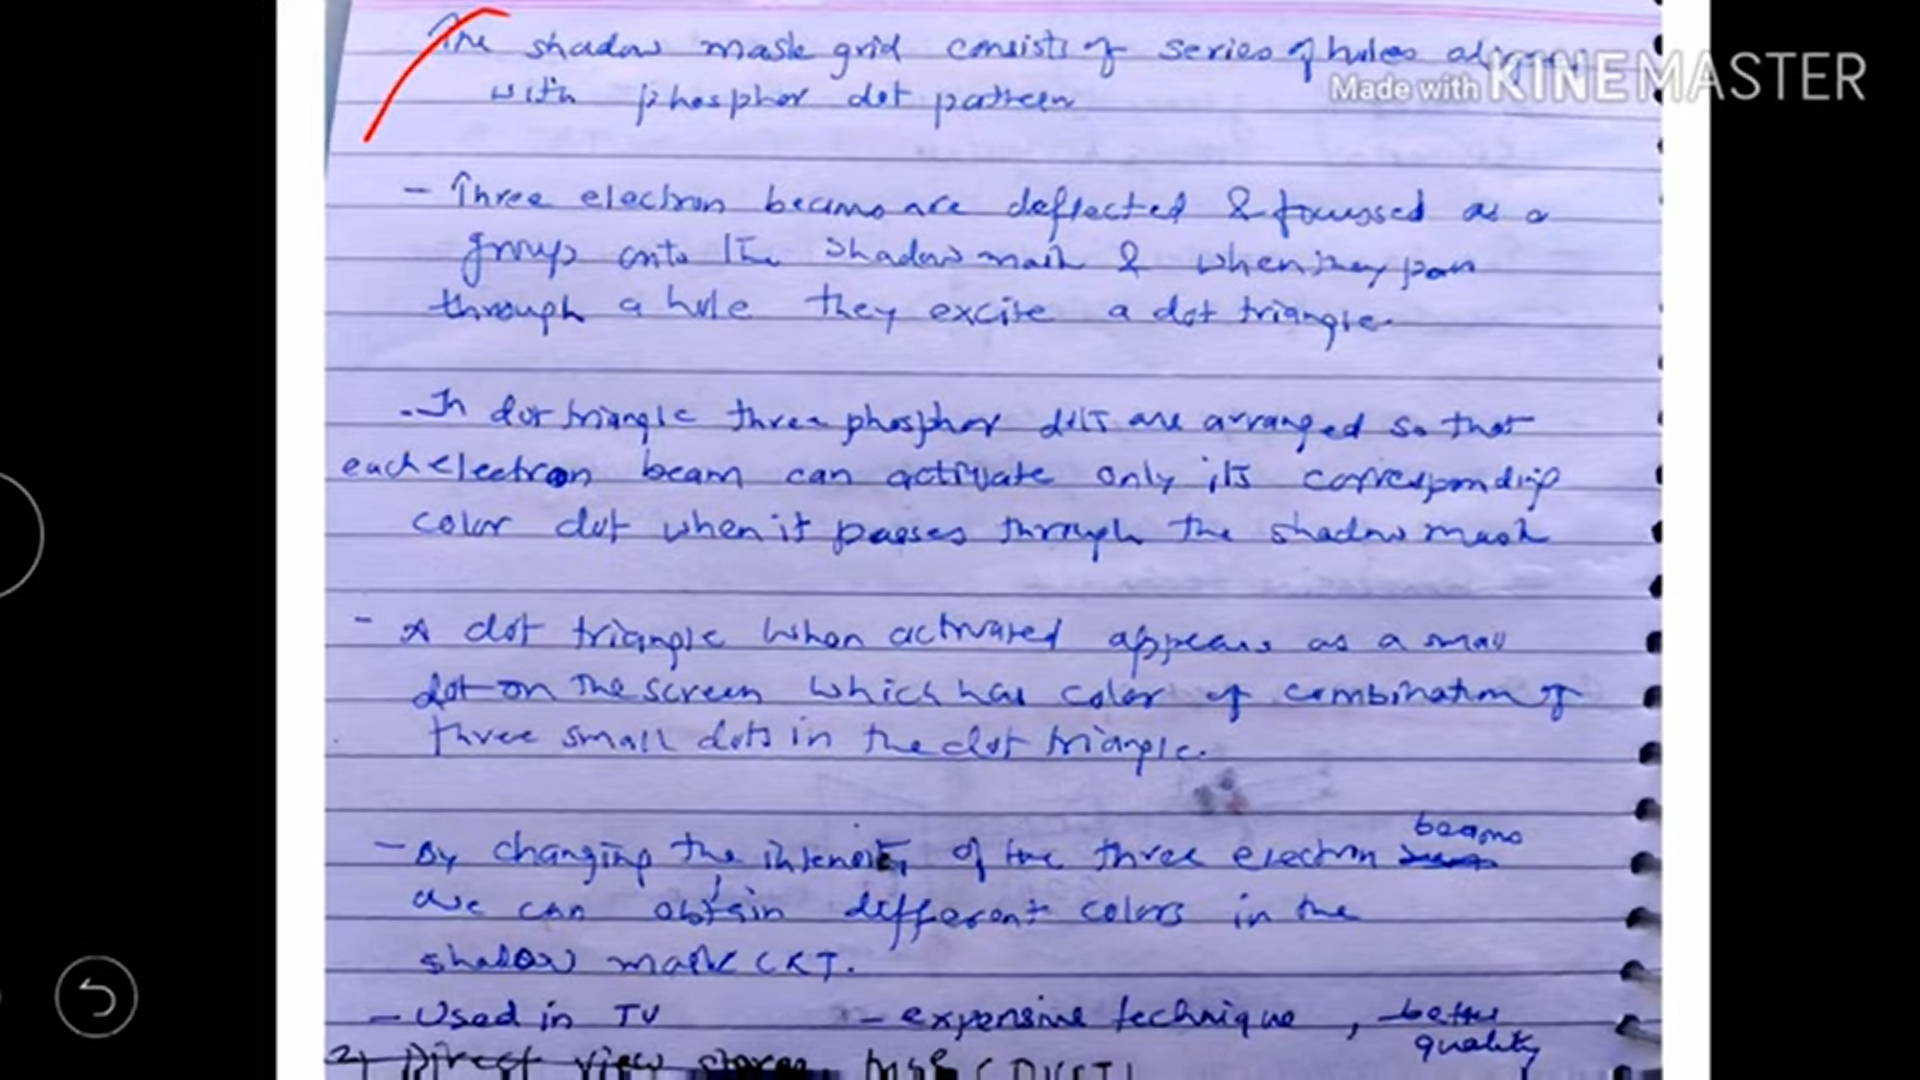 The shadow mask grid consists of series of holes aligned
Made with KINEMASTER
with phosphor dot pattern
- Three electron beams are deflected & focussed as a
group onto the shadow mask & when they pass
through a hole they excite a dot triangle.
- In dot triangle three phosphor dots are arranged so that
each electron beam can activate only its corresponding
color dot when it passes through the shadow mask
- A dot triangle when activated appears as a small
dot on the screen which has color of combination of
three small dots in the dot triangle.
- By changing the intensity of the three electron beams
we can obtain different colors in the
shadow mask CRT.
- Used in TV - expensive technique, better
quality
2) Direct view storage